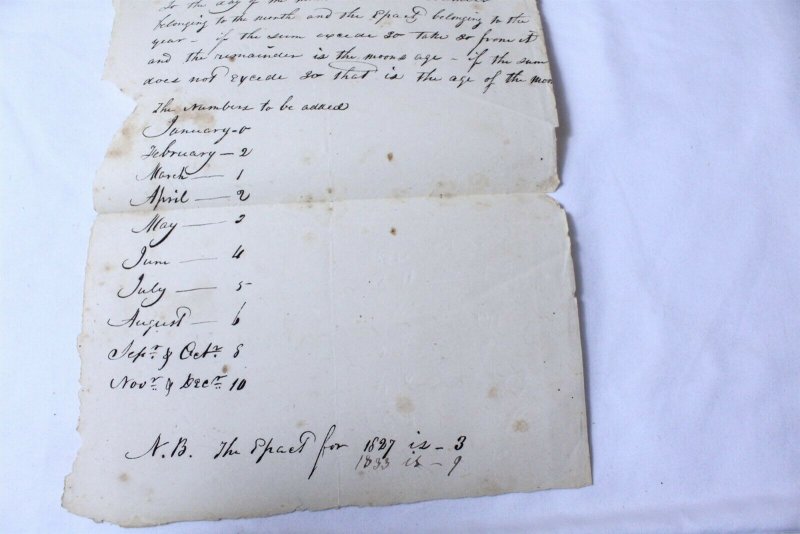 to the day of the
belonging to the month and the Epact belonging to the
year - if the sum excede 30 take 30 from it
and the remainder is the moons age - if the sum
does not excede 30 that is the age of the moon
The Numbers to be added
January - 0
February - 2
March - 1
April - 2
May - 3
June - 4
July - 5
August - 6
Sepr. & Octr. 8
Novr. & Decr. 10
N.B. The Epact for 1827 is - 3
1833 is - 9